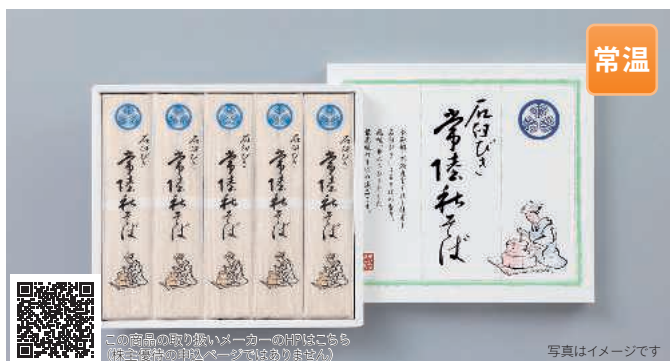 常温
石臼びき
常陸秋そば
石臼びき
常陸秋そば
石臼びき
常陸秋そば
石臼びき
常陸秋そば
石臼びき
常陸秋そば
石臼びき
常陸秋そば
この商品の取り扱いメーカーのHPはこちら
(株主優待の申込ページではありません)
写真はイメージです